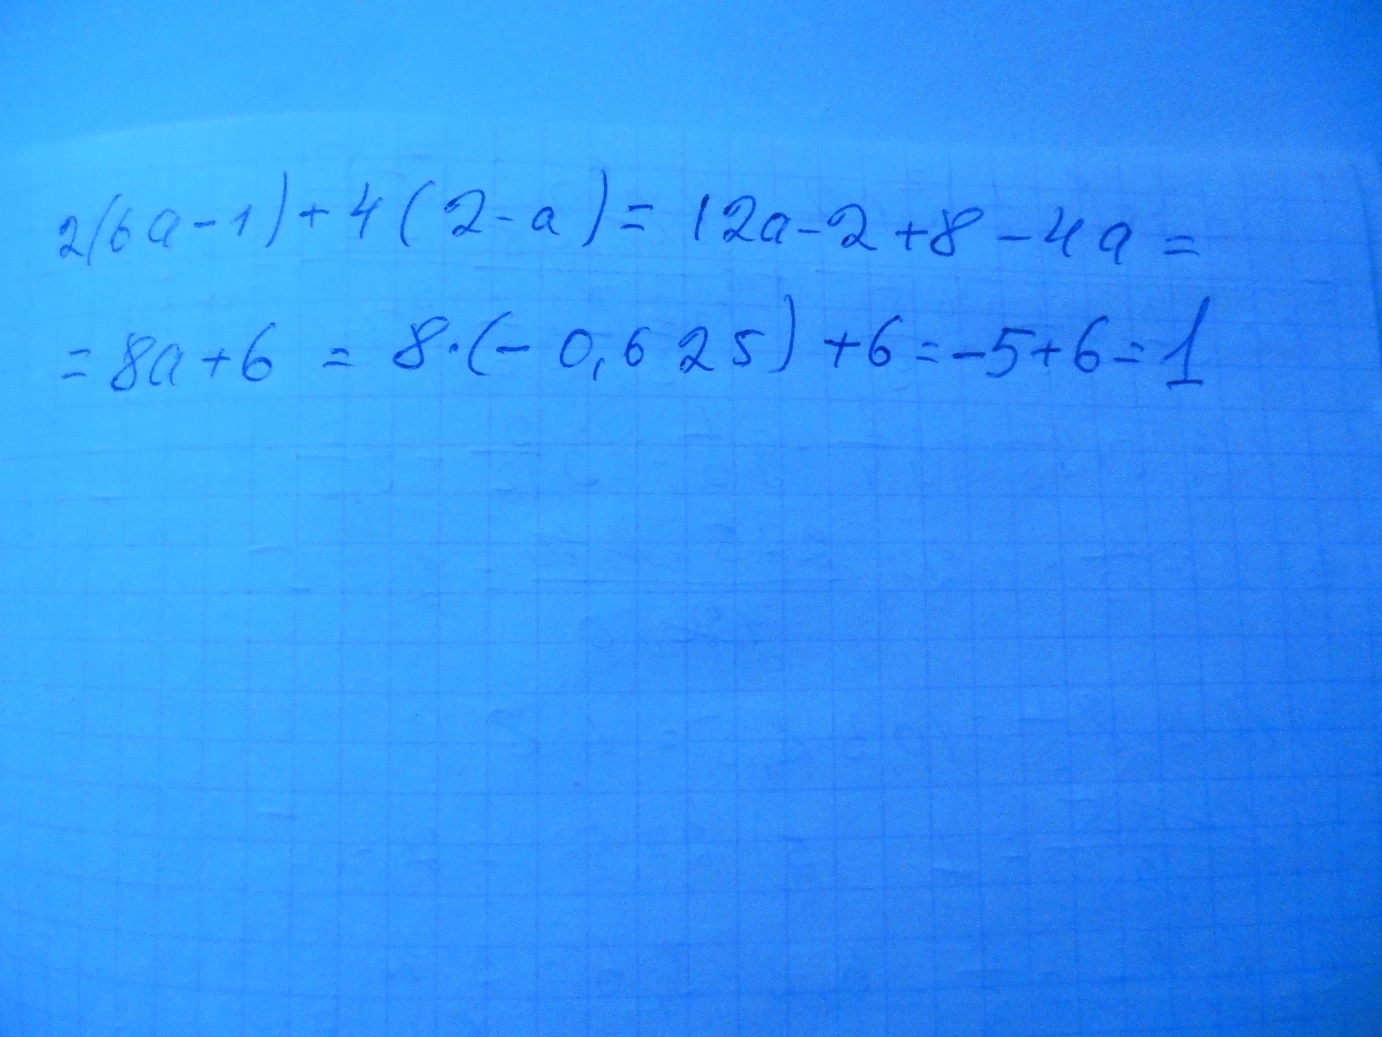 2(6a-1)+4(2-a)=12a-2+8-4a=
=8a+6=8·(-0,625)+6=-5+6=1